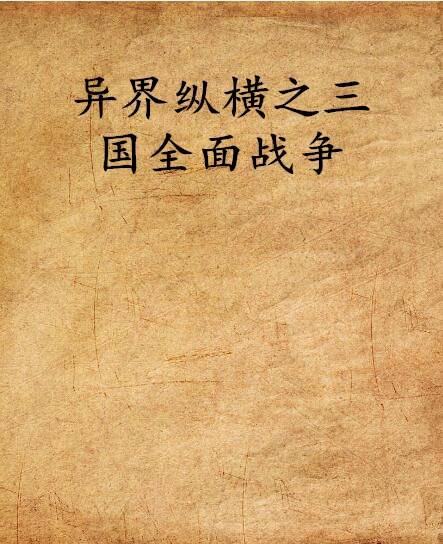 异界纵横之三
国全面战争